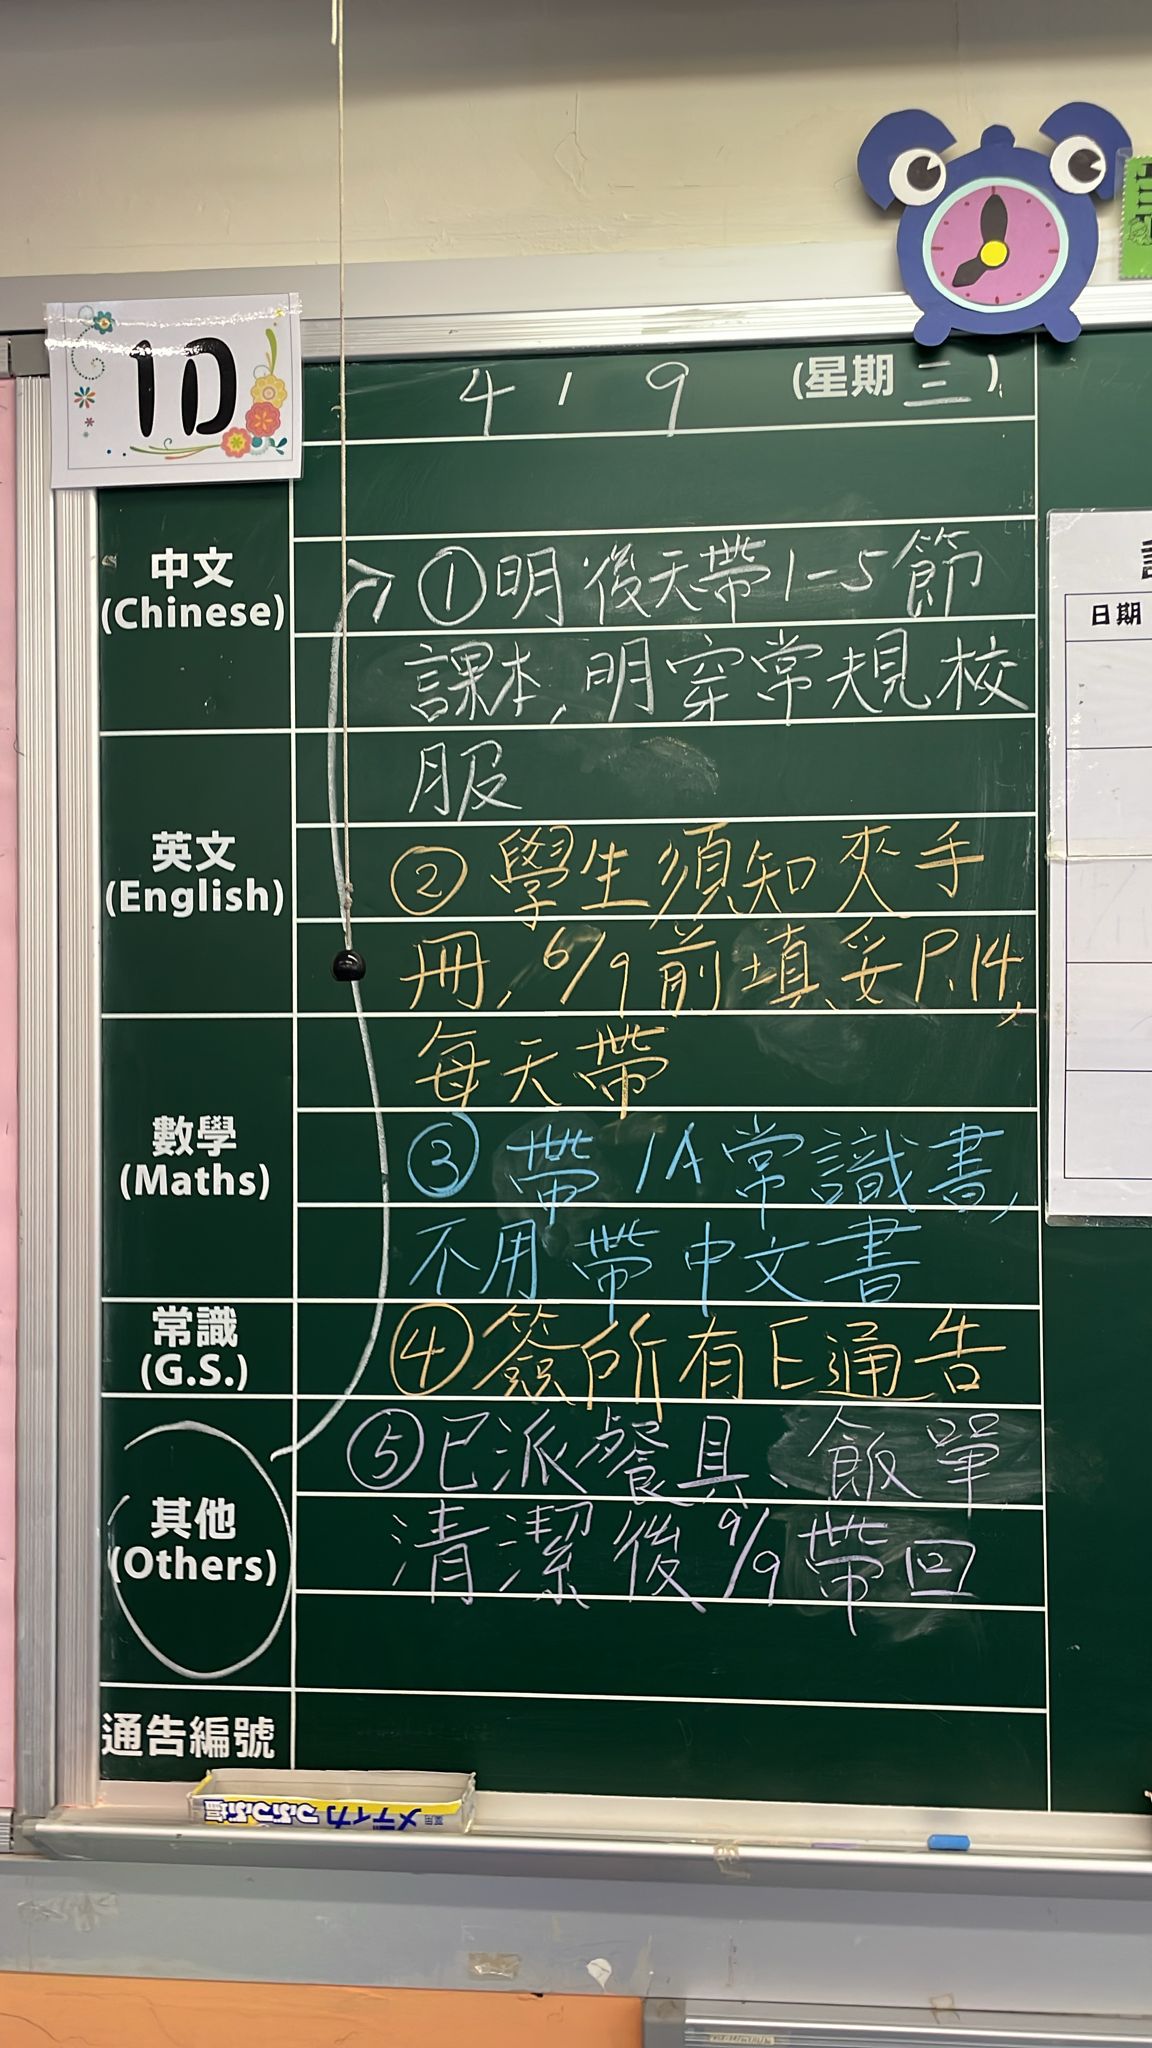 1D
4 / 9 (星期三)
中文
(Chinese)
①明後天帶1-5節
課本,明穿常規校
服
英文
(English)
②學生須知夾手
冊,6/9前填妥P.14,
每天帶
數學
(Maths)
③帶1A常識書,
不用帶中文書
常識
(G.S.)
④簽所有E通告
其他
(Others)
⑤已派餐具、飯單
清潔後9/9帶回
通告編號
日期
メディカ つぶつぶ塩